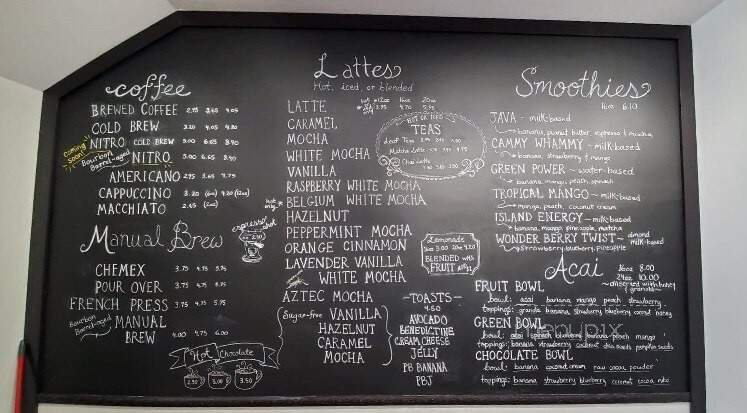 coffee
BREWED COFFEE 2.95 3.45 4.05
COLD BREW 3.20 4.05 4.80
NITRO COLD BREW 5.00 5.65 5.90
coming soon!
Bourbon Barrel-aged NITRO 5.00 5.65 5.90
AMERICANO 2.95 3.65 4.75
CAPPUCCINO 3.20 (6oz) 4.20 (12oz)
MACCHIATO 2.65 (2oz)
espresso shot
2.50
Manual Brew
CHEMEX 3.75 4.75 5.75
POUR OVER 3.75 4.75 5.75
FRENCH PRESS 3.75 4.75 5.75
Bourbon Barrel-aged MANUAL
BREW 4.00 4.75 6.00
Hot Chocolate
2.50 3.00 3.50
Lattes
Hot, iced, or blended
hot only 12oz 16oz 20oz
LATTE 3.95 4.70 5.35
CARAMEL
MOCHA
WHITE MOCHA
VANILLA
RASPBERRY WHITE MOCHA
BELGIUM WHITE MOCHA
HAZELNUT
PEPPERMINT MOCHA
ORANGE CINNAMON
LAVENDER VANILLA
WHITE MOCHA
AZTEC MOCHA
Sugar-free VANILLA
HAZELNUT
CARAMEL
MOCHA
HOT OR ICED
TEAS
Matcha Latte
Chai Latte
Lemonade
16oz 3.00 20oz 4.20
BLENDED with
FRUIT
-TOASTS-
4.50
AVOCADO
BENEDICTINE
CREAM CHEESE
JELLY
PB BANANA
PBJ
Smoothies
16oz 6.10
JAVA - milk-based
banana, peanut butter, espresso & mocha
CAMMY WHAMMY - milk-based
banana, strawberry & mango
GREEN POWER - water-based
banana, mango, peach, spinach
TROPICAL MANGO - milk-based
mango, peach, coconut cream
ISLAND ENERGY - milk-based
banana, mango, pineapple, matcha
WONDER BERRY TWIST - almond milk-based
strawberry, blueberry, pineapple
Acai
16oz 8.00
24oz 10.00
all served with honey & granola
FRUIT BOWL
bowl: acai banana mango peach strawberry
toppings: granola banana strawberry blueberry coconut honey
GREEN BOWL
bowl: acai spinach blueberry banana peach mango
toppings: banana strawberry coconut chia seeds pumpkin seeds
CHOCOLATE BOWL
bowl: banana coconut cream raw cacao powder
toppings: banana strawberry blueberry coconut cacao nibs